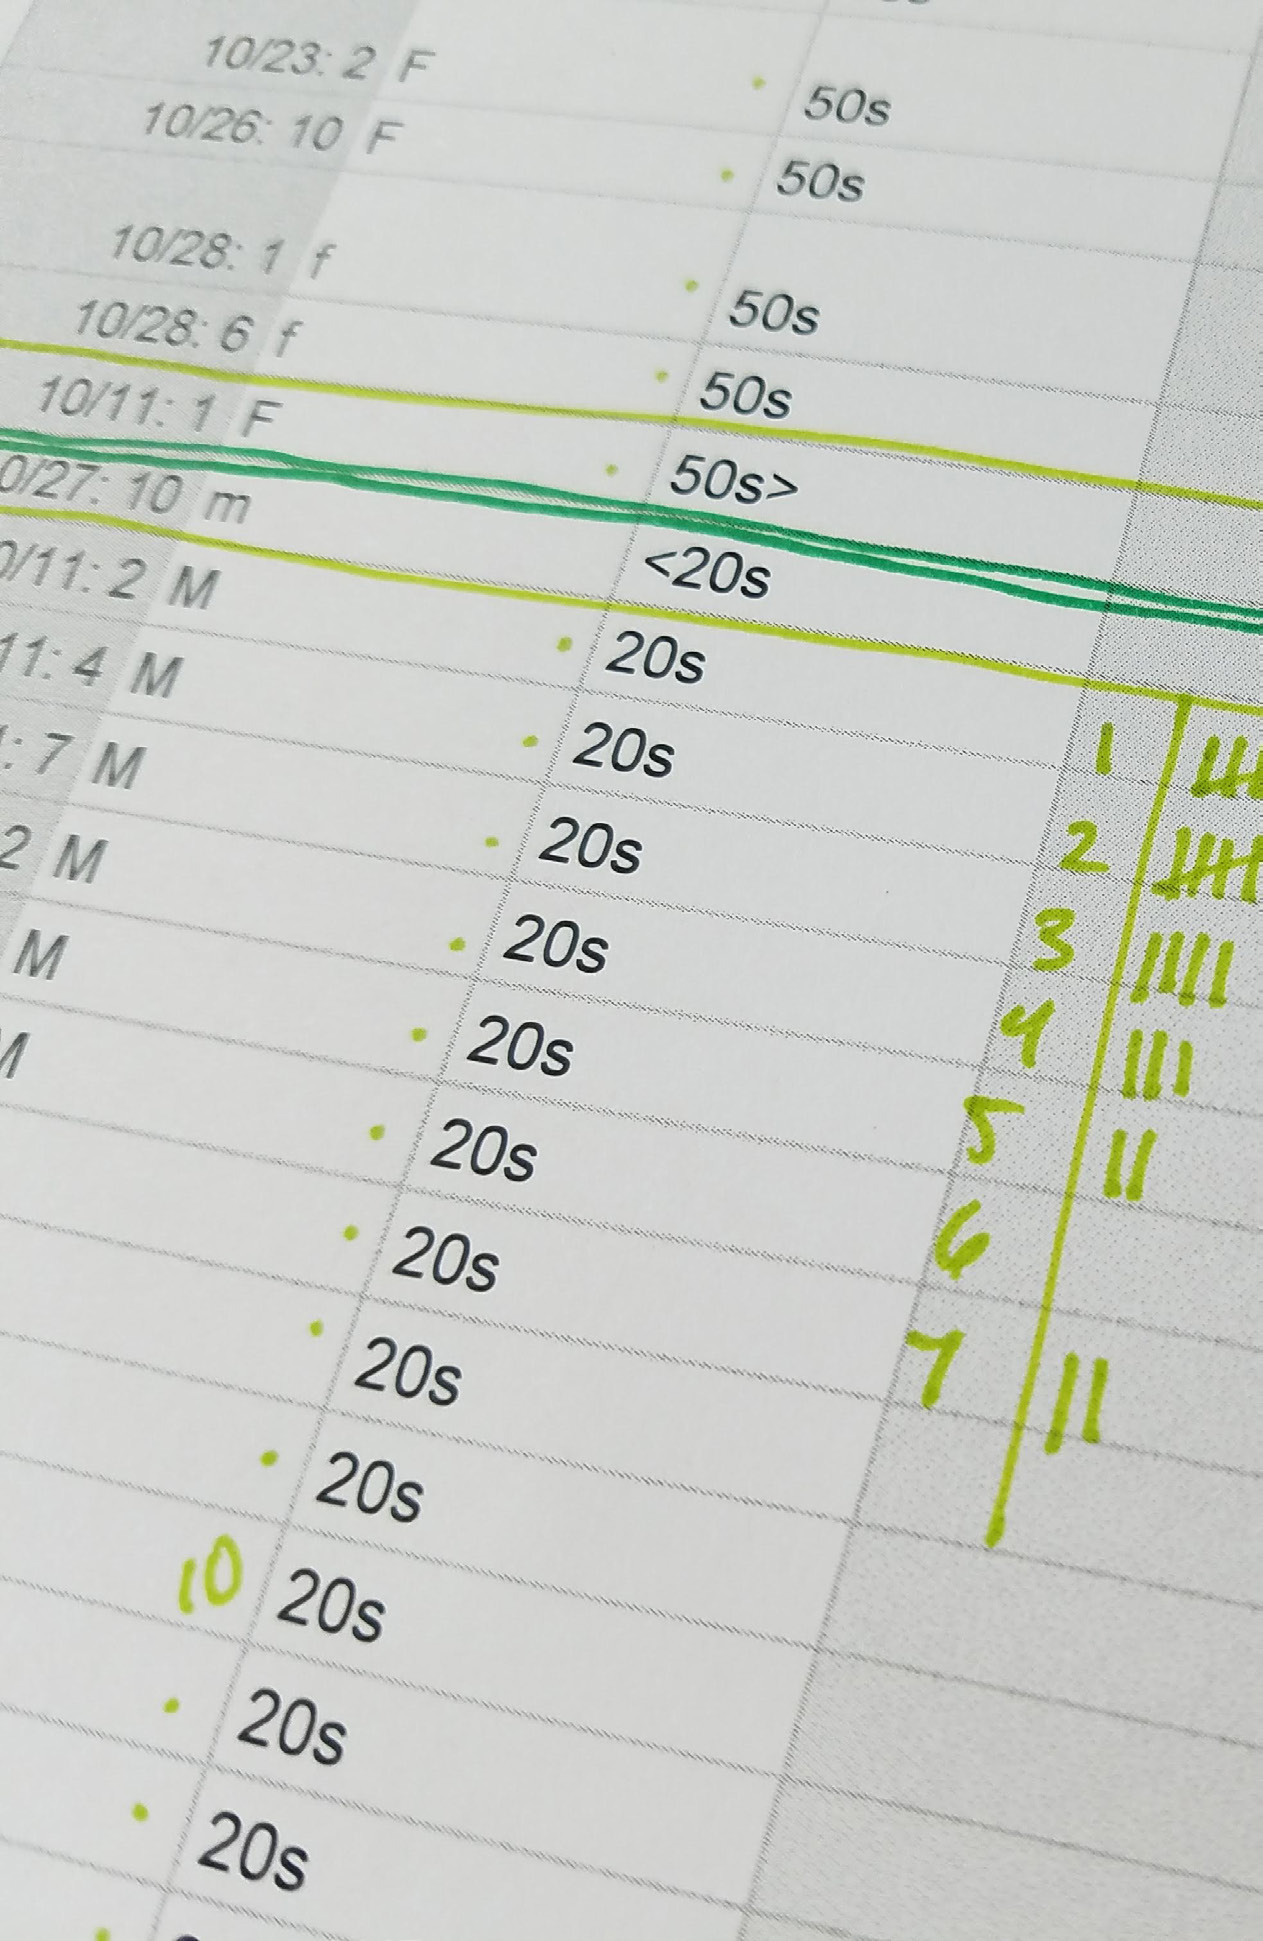 10/23: 2 F 50s
10/26: 10 F 50s
10/28: 1 f 50s
10/28: 6 f 50s
10/11: 1 F 50s>
0/27: 10 m <20s
0/11: 2 M 20s
11: 4 M 20s 1
: 7 M 20s 2
2 M 20s 3
M 20s 4
M 20s 5
20s 6
20s 7
20s
10 20s
20s
20s